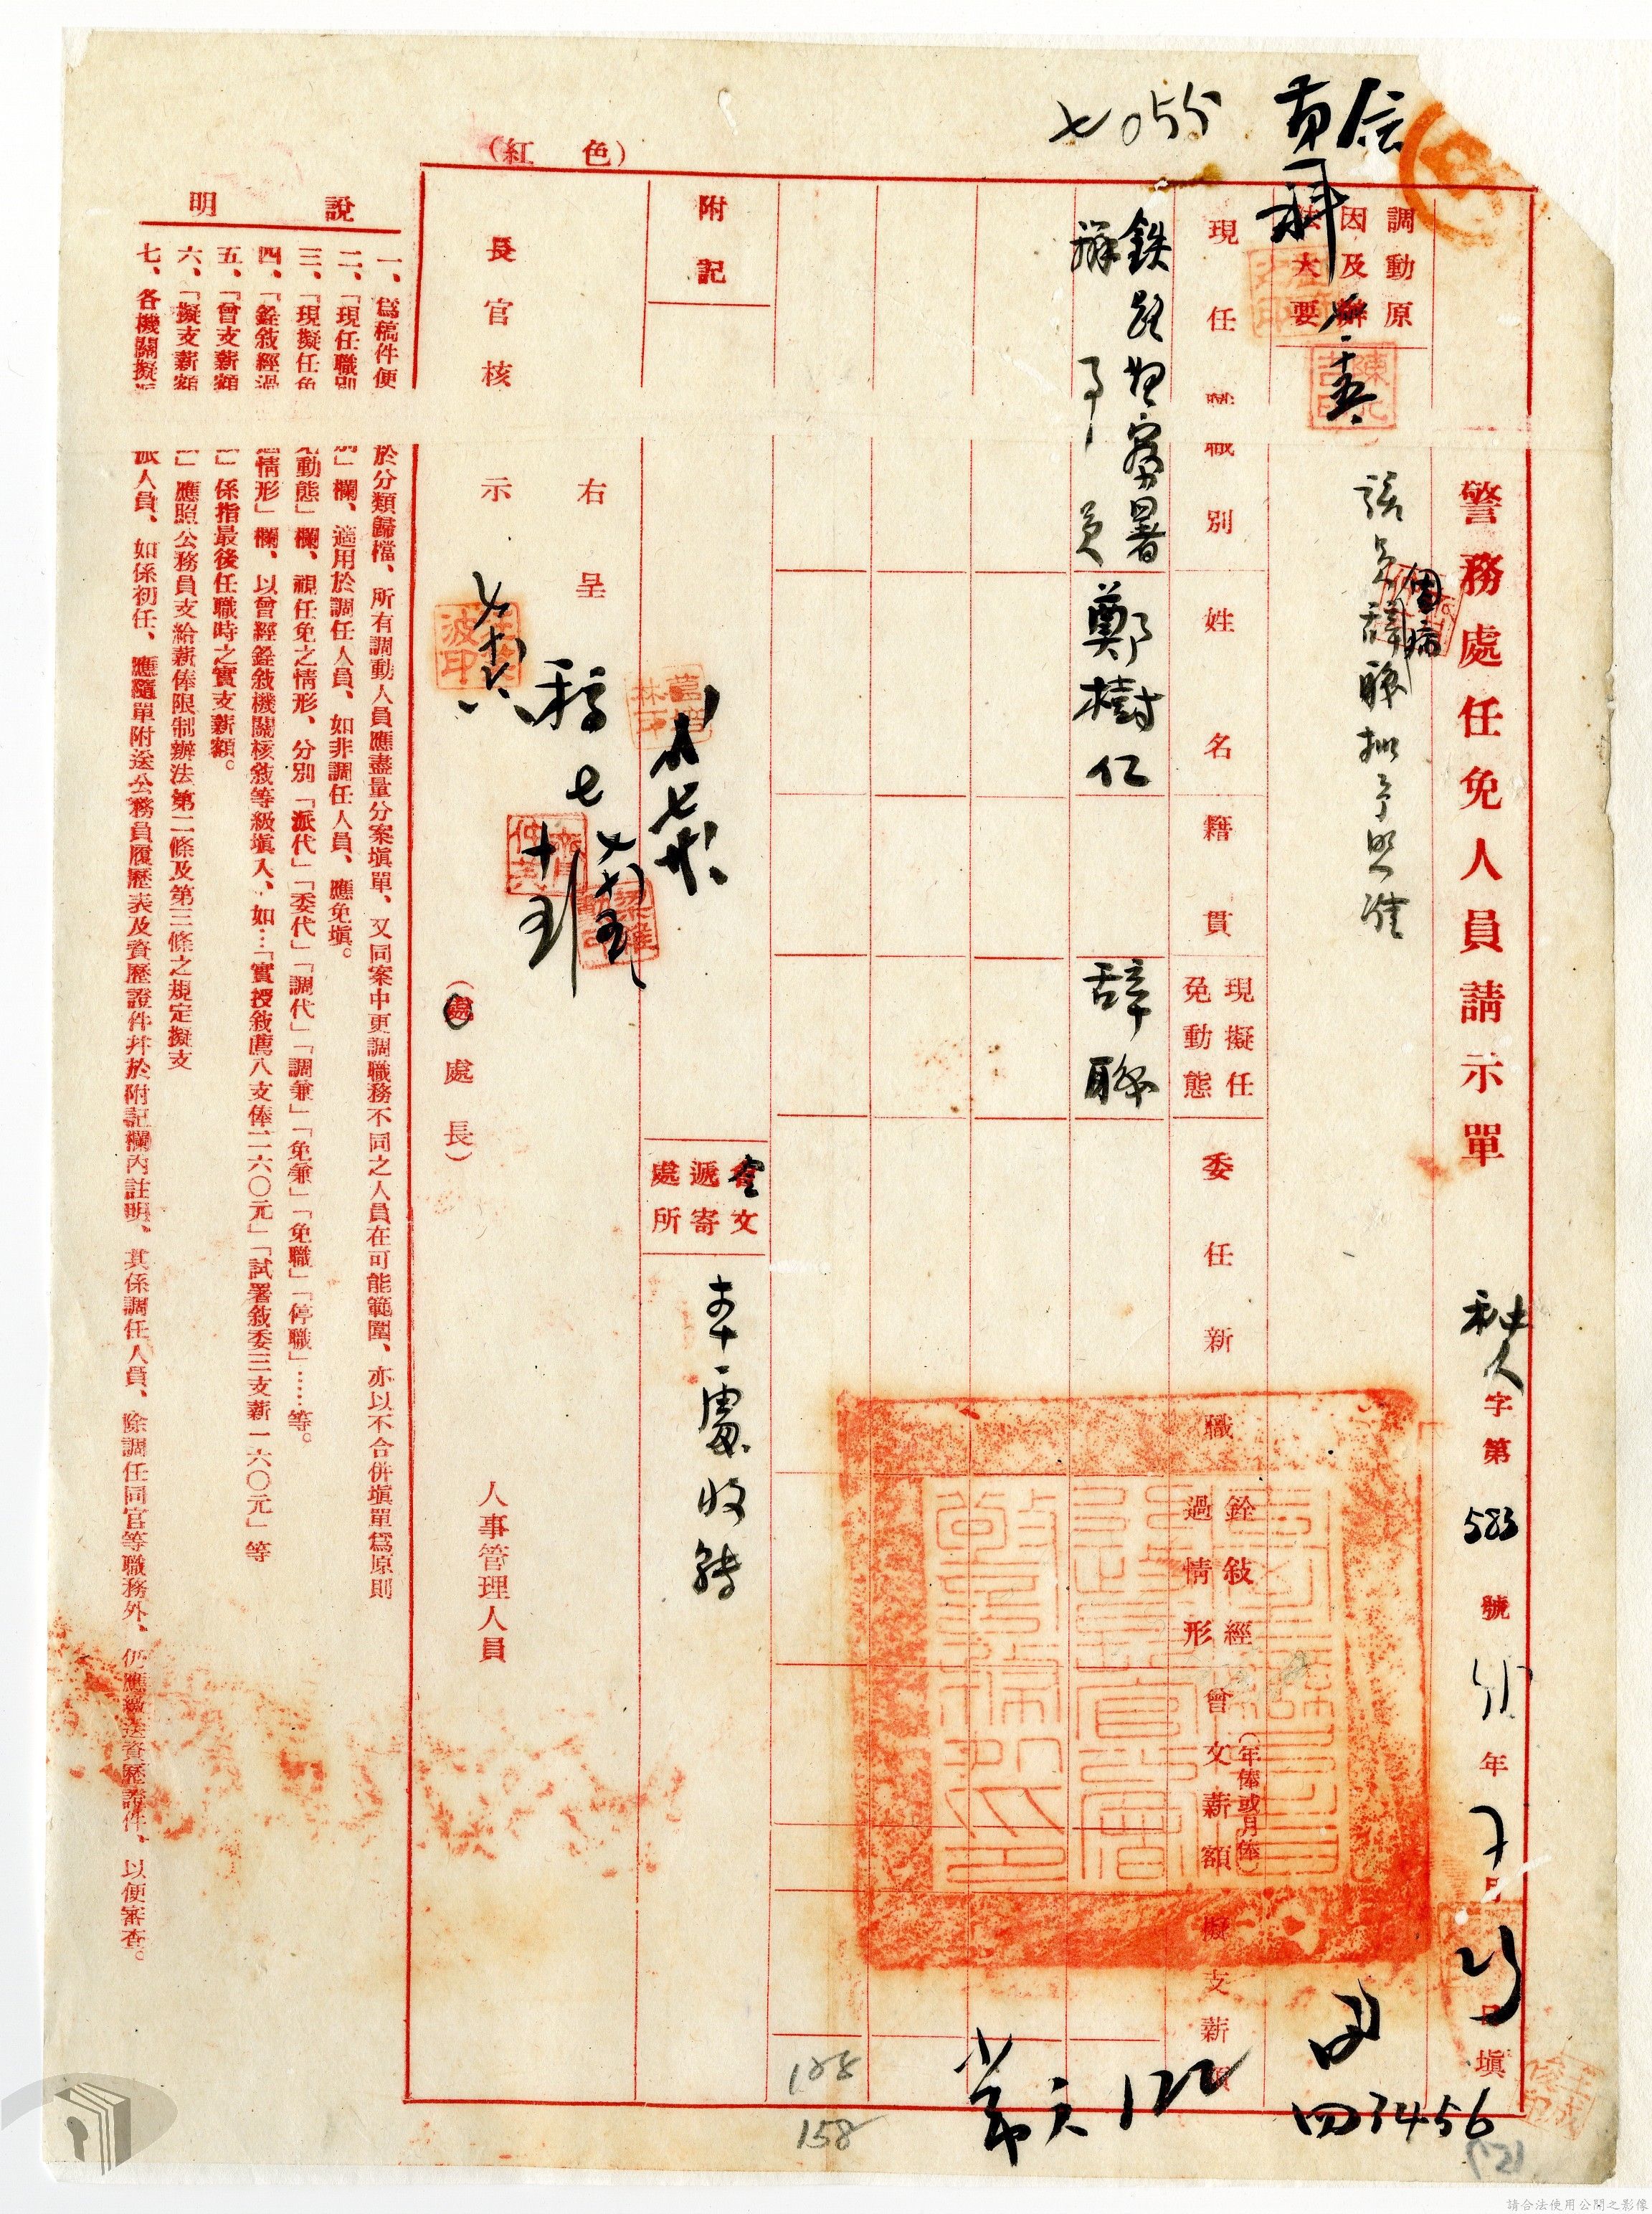 (紅色)
警務處任免人員請示單
秘人字第583號 年 月 日填
調動原
因及辦
法大要
該員因病辭職擬予照准
現任職職別
姓名
籍貫
現擬任
免動態
委任新職
銓敍經
過情形
曾支薪額
(年俸或月俸)
擬支薪額
鉄路警察署
辦事員
鄭樹仁
辞職
附記
文
遞寄
處所
本處收轉
右呈
長官核示
(處處長)
人事管理人員
說明
一、爲稿件便於分類歸檔、所有調動人員應盡量分案塡單、又同案中更調職務不同之人員在可能範圍、亦以不合併塡單爲原則
二、「現任職別」欄、適用於調任人員、如非調任人員、應免塡。
三、「現擬任免動態」欄、視任免之情形、分別「派代」「委代」「調代」「調兼」「免兼」「免職」「停職」……等。
四、「銓敍經過情形」欄、以曾經銓敍機關核敍等級塡入、如…「實授敍薦八支俸二六〇元」「試署敍委三支薪一六〇元」等
五、「曾支薪額」係指最後任職時之實支薪額。
六、「擬支薪額」應照公務員支給薪俸限制辦法第二條及第三條之規定擬支
七、各機關擬派人員、如係初任、應隨單附送公務員履歷表及資歷證件幷於附記欄內註明、其係調任人員、除調任同官等職務外、仍應繳送資歷證件、以便審查。
四3456
122
158
請合法使用公開之影像